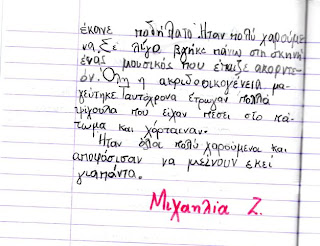 έκανε ποδήλατο. Ήταν πολύ χαρούμε
να. Σε λίγο βγήκε πάνω στη σκηνή
ένας μουσικός που έπαιξε ακορντε
όν. Όλη η ακριδοοικογένεια μα
γεύτηκε. Ταυτόχρονα έτρωγαν πολλά
ψίχουλα που είχαν πέσει στο πά
τωμα και χόρταιναν.
Ήταν όλοι πολύ χαρούμενοι και
αποφάσισαν να μείνουν εκεί
γιαπάντα.
Μιχαηλία Ζ.